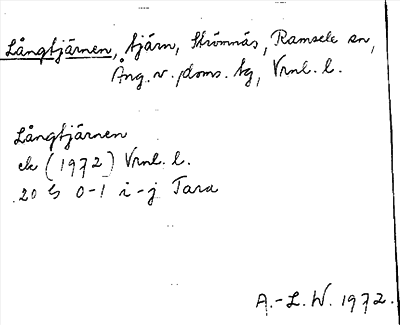 Långtjärnen, tjärn, Strömnäs, Ramsele sn,
Ång. v. doms. tg, Vrnl. l.
Långtjärnen
ek (1972) Vrnl. l.
20 G 0-1 i-j Tara
A.-L. W. 1972.